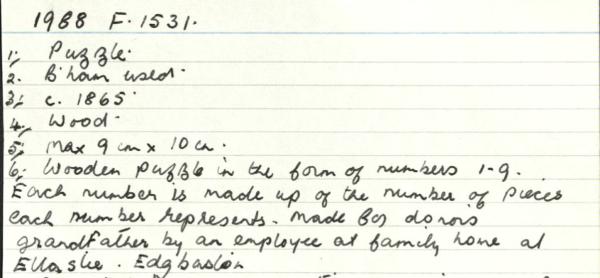 1988 F. 1531.
1; Puzzle.
2. B'ham used.
3; c. 1865
4; Wood.
5; Max 9 cm x 10 cm.
6; Wooden puzzle in the form of numbers 1-9.
Each number is made up of the number of pieces
each number represents. Made for donors
grandfather by an employee at family home at
Edgbaston